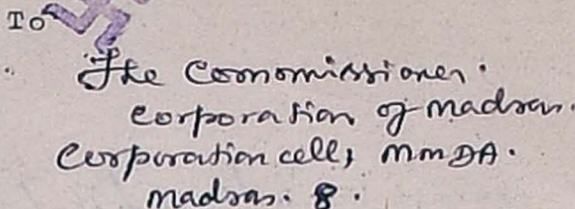 To
The Commissioner.
Corporation of Madras.
Corporation cell, MMDA.
Madras. 8.